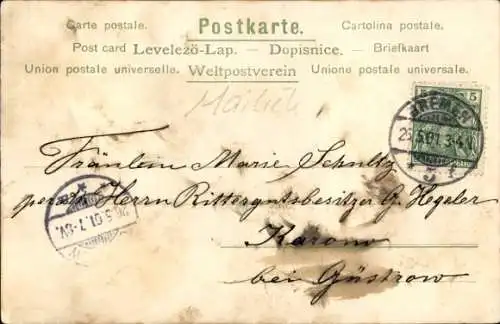 Carte postale. Postkarte. Cartolina postale.
Post card Levelező-Lap. — Dopisnice. — Briefkaart
Union postale universelle. Weltpostverein Unione postale universale.
5 5
BREMEN
26.5.01. 3-4
5
Fräulein Marie Schultz
per adr. Herrn Rittergutsbesitzer G. Hegeler
Karow
bei Güstrow
26.5.01. 7-8V.